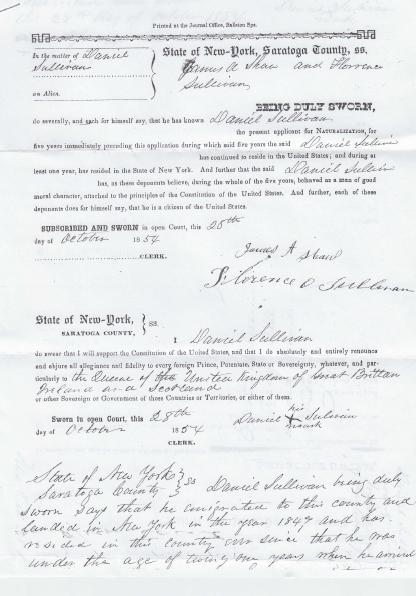 Printed at the Journal Office, Ballston Spa.
In the matter of Daniel
Sullivan
an Alien.
State of New-York, Saratoga County, ss.
James A Shaw and Florence
Sullivan
BEING DULY SWORN,
do severally, and each for himself say, that he has known Daniel Sullivan
the present applicant for NATURALIZATION, for
five years immediately preceding this application during which said five years the said Daniel Sullivan
has continued to reside in the United States; and during at
least one year, has resided in the State of New York. And further that the said Daniel Sullivan
has, as these deponents believe, during the whole of the five years, behaved as a man of good
moral character, attached to the principles of the Constitution of the United States. And further, each of these
deponents does for himself say, that he is a citizen of the United States.
SUBSCRIBED AND SWORN in open Court, this 28th
day of October 1854
CLERK.
James A Shaw
Florence O Sullivan
State of New-York,
SARATOGA COUNTY,
ss.
I Daniel Sullivan
do swear that I will support the Constitution of the United States, and that I do absolutely and entirely renounce
and abjure all allegiance and fidelity to every foreign Prince, Potentate, State or Sovereignty, whatever, and par-
ticularly to the Queene of the United Kingdom of Great Brittan
Ireland and Scotland
or other Sovereign or Government of those Countries or Territories, or either of them.
Sworn in open Court, this 28th
day of October 1854
CLERK.
Daniel his mark Sulivan
State of New York
Saratoga County
ss
Daniel Sullivan being duly
Sworn Says that he emigrated to this country and
landed in New York in the year 1847 and has
resided in this country ever since that he was
under the age of twenty one years when he arrived